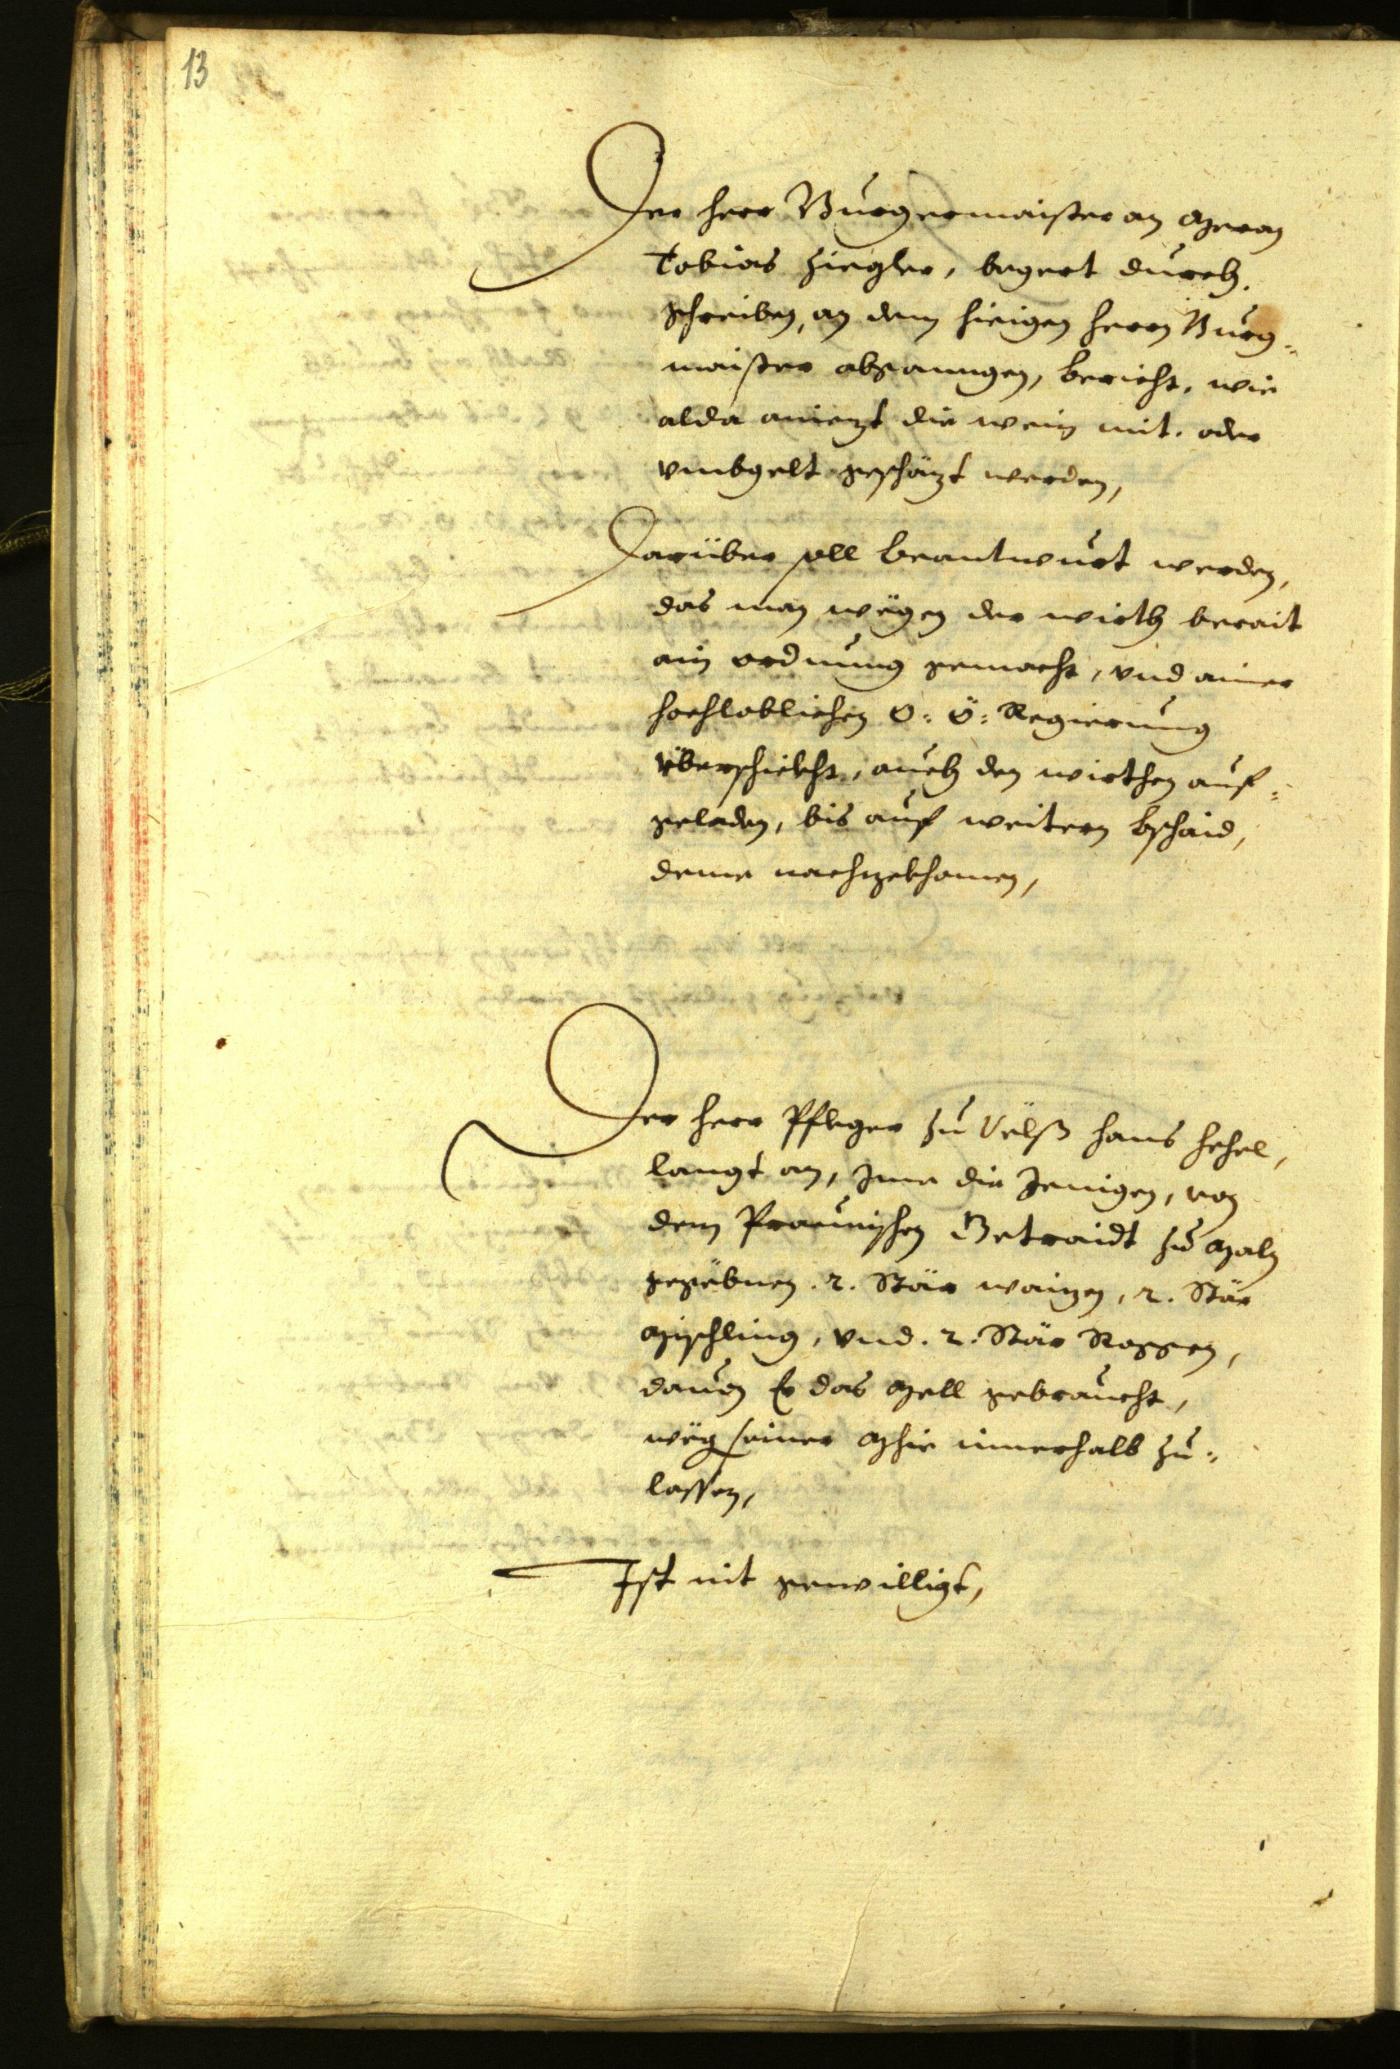 13
Der herr Burgermaister an Meran
Tobias Ziegler, begert durch
schreiben, an dem hieigen herrn Burg¬
maister abganngen, bericht, wie
alda aniezt die wein mit oder
vmbgelt geschäzt werden,
Darüber soll beantwurt werden,
das man wëgen der wirth berait
ain ordnung gemacht, vnd ainer
hochloblichen O: Ö: Regierung
überschickht, auch den wirthen auf¬
geladen, bis auf weitern bschaid,
deme nachzekhomen,
Der herr Pfleger zu Vëlß hans
langt an, Jme die Jenigen, von
dem Praunischen Getraidt zu
gegëbnen 2. Stär waizen, 2. Stär
Mischling, vnd 2. Stär Roggen,
dauon Er das Mell gebraucht,
wëg seiner Mhüe innerhalb zu¬
lassen,
Ist nit gewilligt,